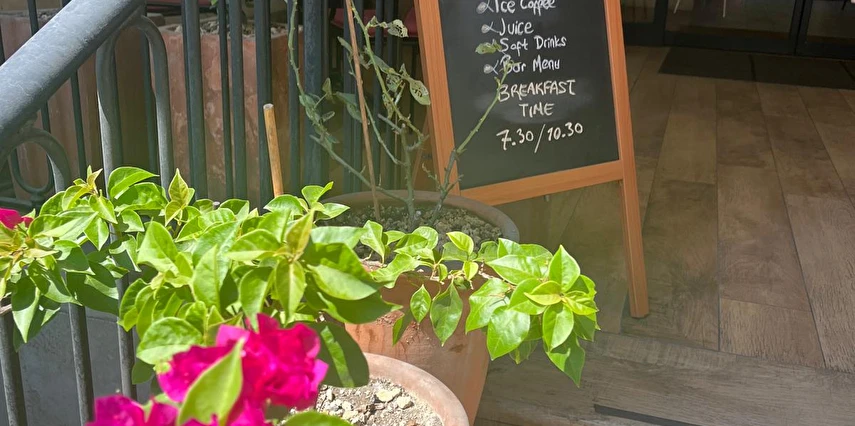 Ice Coffee
Juice
Soft Drinks
Bar Menu
BREAKFAST
TIME
7.30/10.30